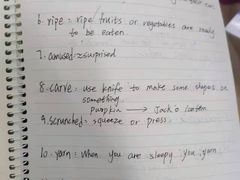 6. ripe: ripe fruits or vegetables are ready
to be eaten
7. amused: surprised
8. carve: use knife to make some shapes on
something.
Pumpkin → Jack'o lantern
9. scrunched: squeeze or press
10. yarn: When you are sleepy you yarn.